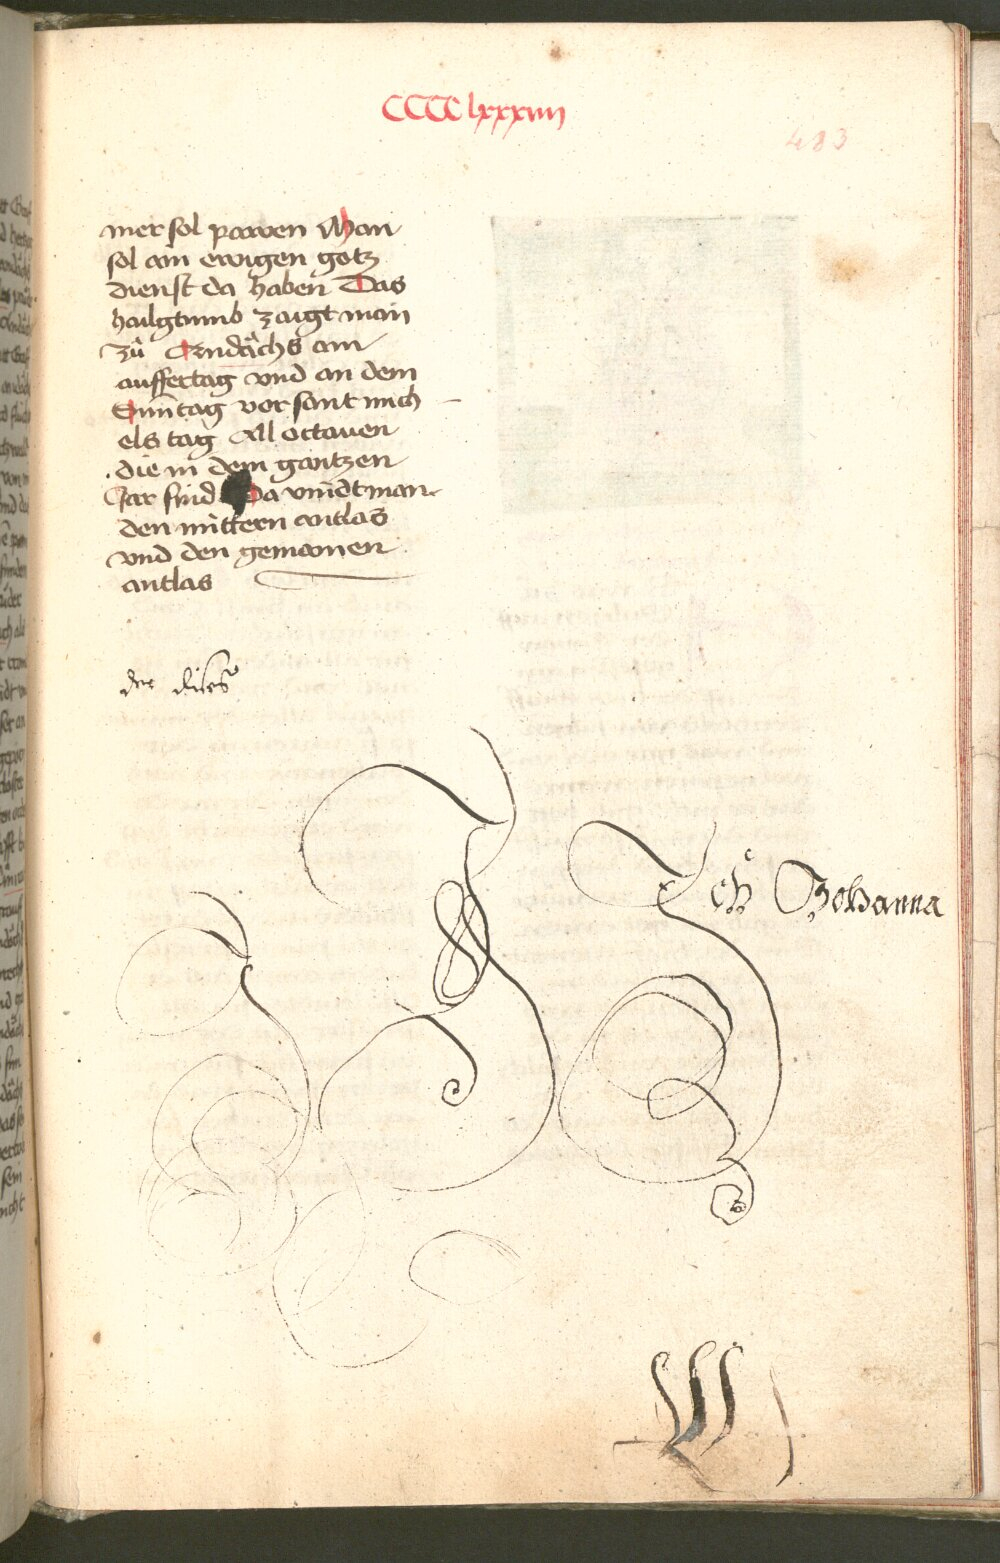 CCCC lxxxiiii
483
mer sol pawen Man
sol ain ewigen gotz
dienst da haben Das
hailgtumb zaigt man
zů Andächs am
auffertag vnd an dem
Sunntag vor sant mich
els tag All octauen
die in dem gantzen
Jar sind Da vindt man
den mittern antlas
vnd den gemainen
antlas
der
Ich Johanna
W